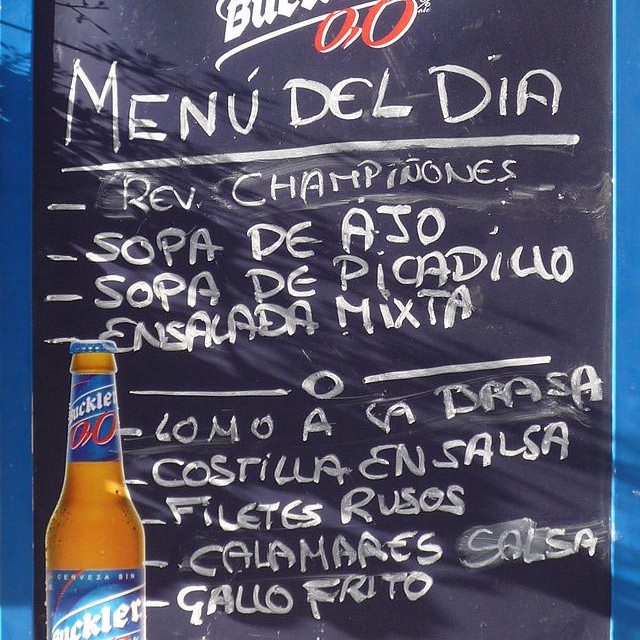 BUCKLER
0,0
MENÚ DEL DIA
- REV. CHAMPIÑONES
- SOPA DE AJO
- SOPA DE PICADILLO
- ENSALADA MIXTA
O
- LOMO A LA BRASA
- COSTILLA EN SALSA
- FILETES RUSOS
- CALAMARES SALSA
- GALLO FRITO
BUCKLER
0,0
CERVEZA SIN
BUCKLER